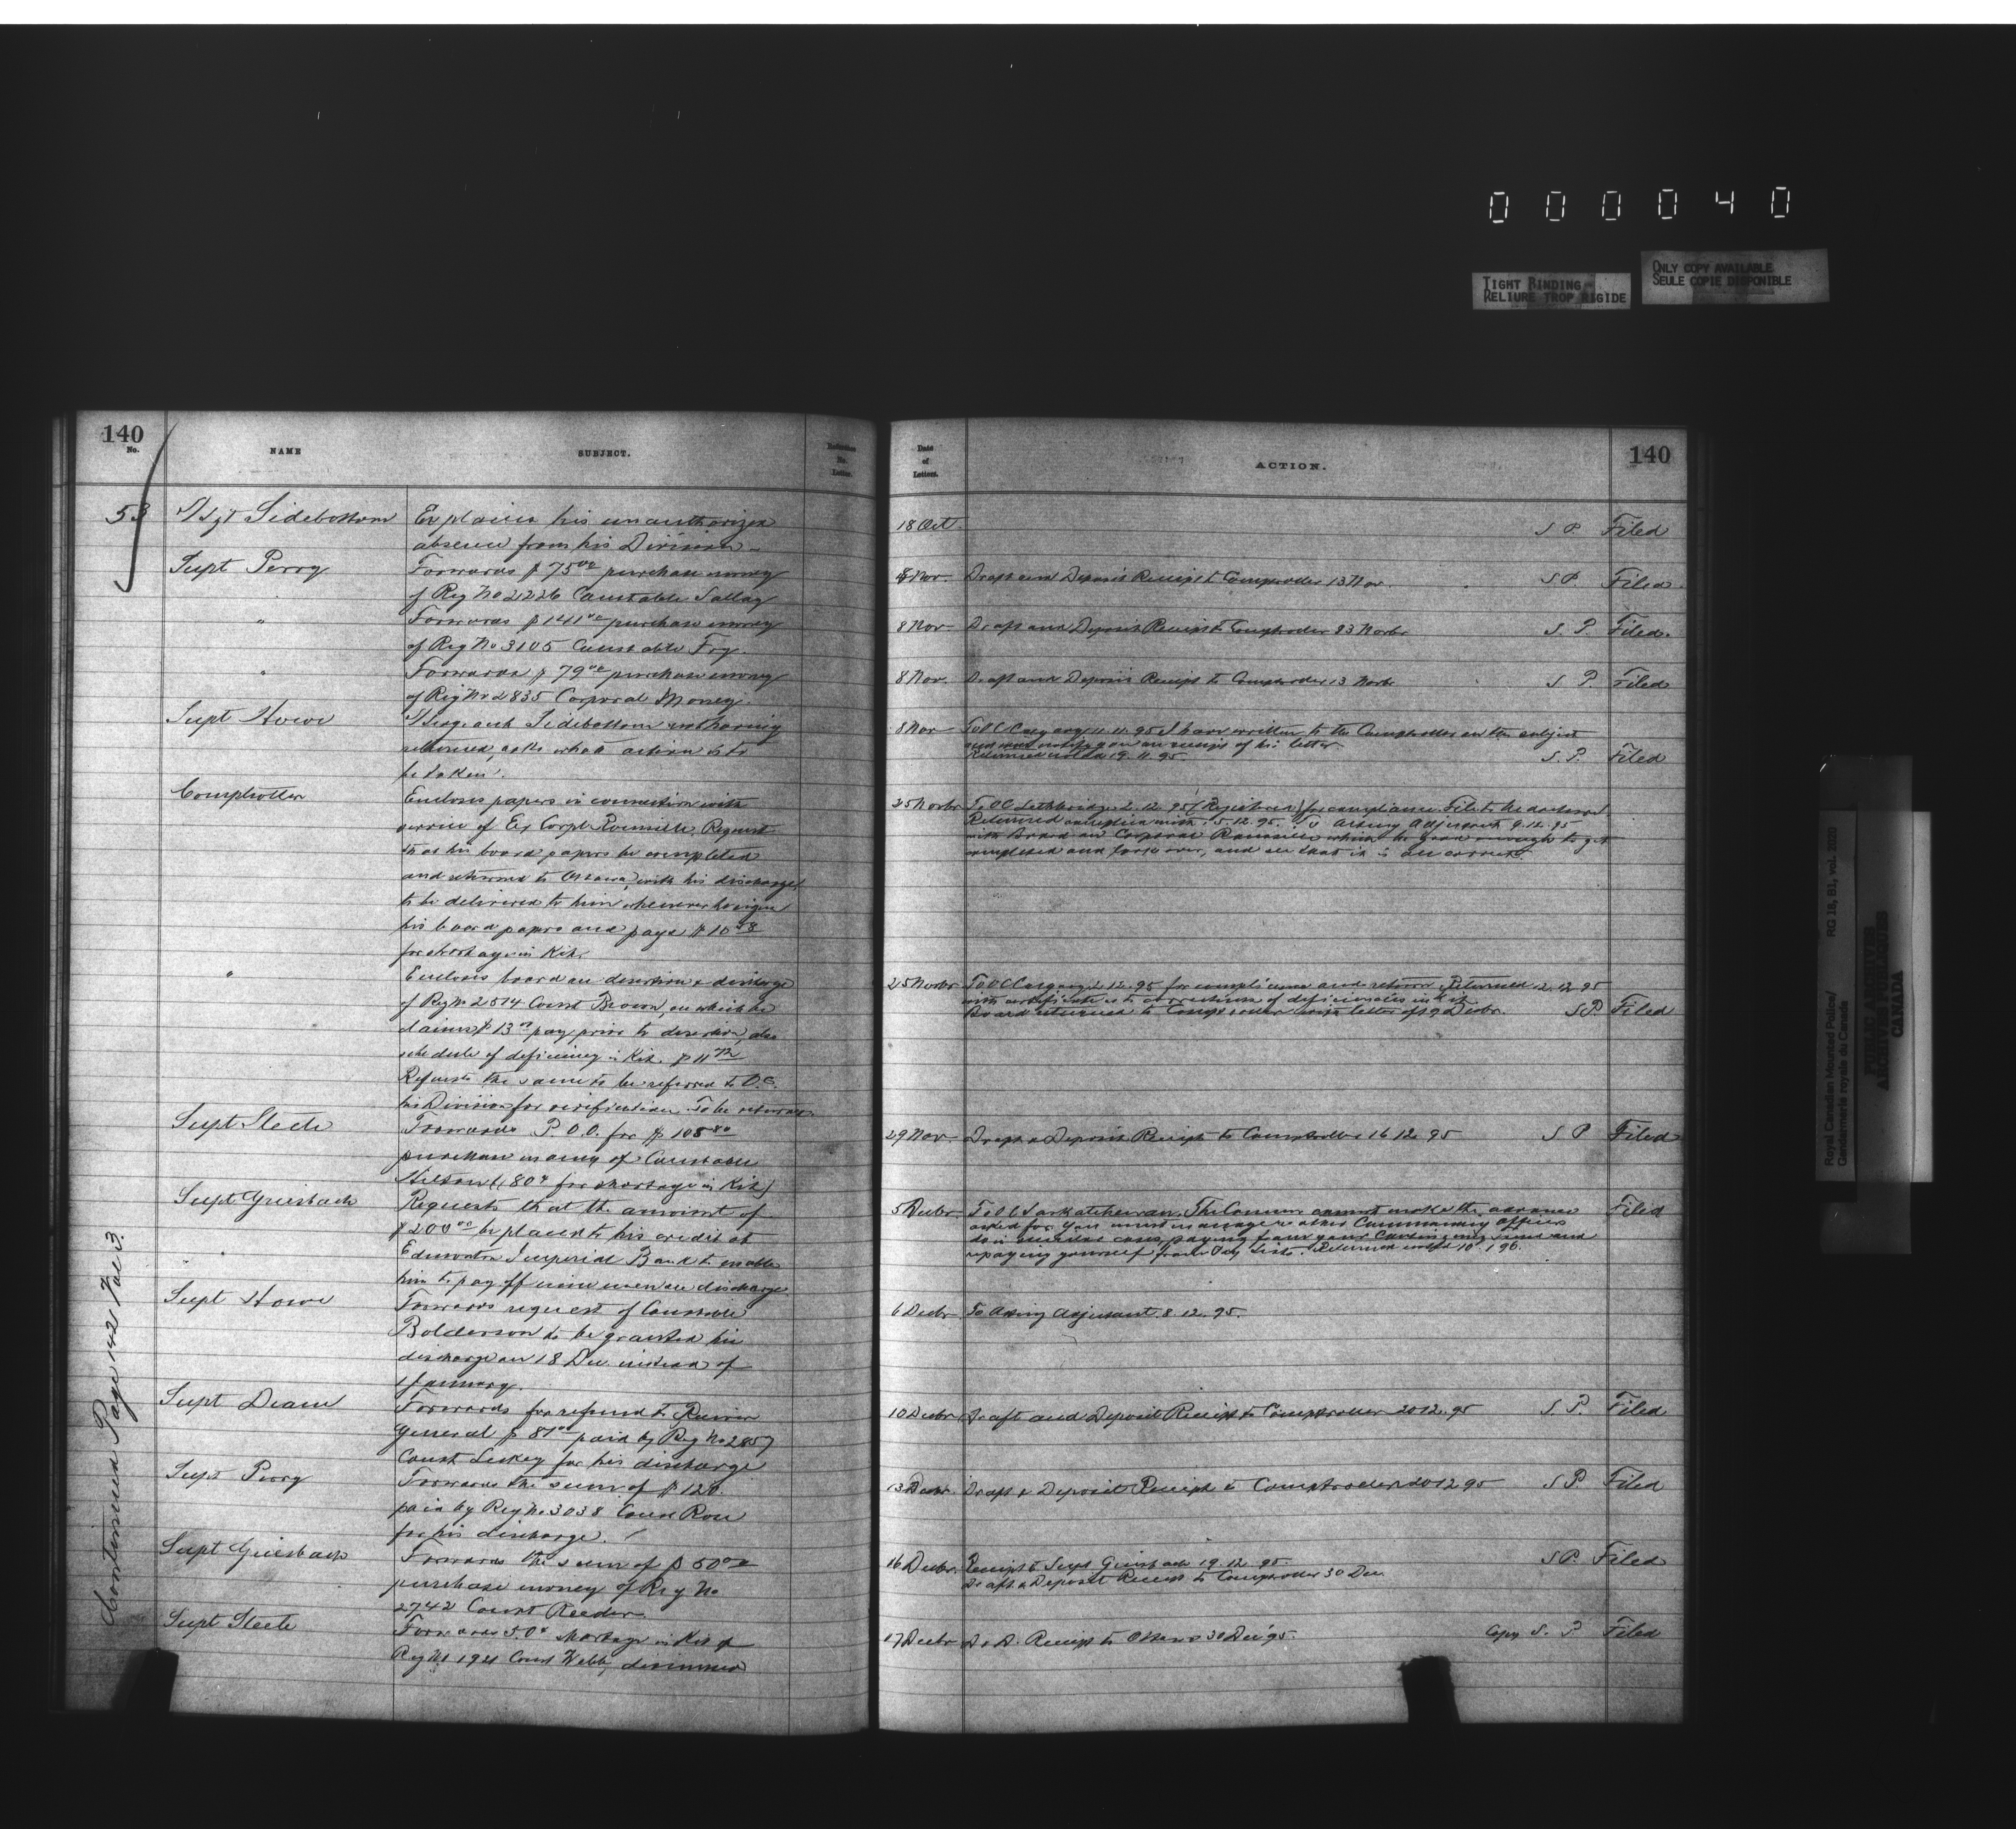 000040
TIGHT BINDING
RELIURE TROP RIGIDE
ONLY COPY AVAILABLE
SEULE COPIE DISPONIBLE
140
No.
NAME
SUBJECT.
Reference
No.
Letter.
53
Sgt Sidebottom
Explains his unauthorized
absence from his Division
Supt Perry
Forwards $75.00 purchase money
of Reg No 2226 Constable
"
Forwards $141.00 purchase money
of Reg No 3105 Constable Fry.
"
Forwards $79.00 purchase money
of Reg No 2835 Corporal Money.
Supt Howe
Sergeant Sidebottom not having
returned, asks what action is to
be taken.
Comptroller
Encloses papers in connection with
service of Ex Corpl Request
that his board papers be completed
and returned to Ottawa, with his discharge
to be delivered to him whenever he signs
his board papers and pays $10.58
for shortage in Kit.
"
Encloses board on desertion & discharge
of Reg No 2514 Const Brown, on which he
claims $13.00 pay prior to desertion, also
schedule of deficiency in Kit. $11.72
Requests the same to be referred to O.C.
his Division for verification. To be returned
Supt Steele
Forwards P.O.O. for $108.80
purchase money of Constable
(.80c for shortage in Kit)
Supt Griesbach
Requests that the amount of
$200.00 be placed to his credit at
Edmonton Imperial Bank to enable
him to pay off men on discharge
Supt Howe
Forwards request of Constable
Bolderson to be granted his
discharge on 18 Dec instead of
January.
Supt Deane
Forwards for refund to Receiver
General $87.00 paid by Reg No 2857
Const Leskey for his discharge
Supt Perry
Forwards the sum of $120.
paid by Reg No 3038 Const Rose
for his discharge.
Supt Griesbach
Forwards the sum of $50.00
purchase money of Reg No
2742 Const Reeder
Supt Steele
Forwards 50c shortage in Kit of
Reg No Const Webb, dismissed
Continued Page 142 Vol 3.
Date
of
Letters.
ACTION.
140
18 Oct S P. Filed
8 Nov Draft and Deposit Receipt to Comptroller 13 Nov. S P. Filed.
8 Nov Draft and Deposit Receipt to Comptroller 23 Novbr S. P. Filed.
8 Nov. Draft and Deposit Receipt to Comptroller 13 Novbr S P. Filed
8 Nov To O C Calgary 11.11.95 I have written to the Comptroller on the subject
and will notify you on receipt of his letter.
Returned noted 19.11.95. S. P. Filed
25 Novbr To OC Lethbridge 2.12.95 (Registered) for compliance. File to be returned
Returned complied with. 5.12.95. To Acting Adjutant 9.12.95
with Board on Corporal which be good enough to get
completed and look over, and see that it is all correct.
25 Novbr To OC Calgary 2.12.95 for compliance and return. Returned 12.12.95
with certificate as to correctness of deficiencies in Kit
Board returned to Comptroller with letter of 19 Decbr. S P. Filed
29 Nov Draft & Deposit Receipt to Comptroller 16 12 95 S P Filed
5 Decbr To O C Saskatchewan. The Commr cannot make the advance
asked for. You must manage as other Commanding Officers
do in similar cases, paying from your Contingency fund and
repaying yourself from Pay Lists. Returned noted 10.1.96. Filed
6 Decbr To Acting Adjutant 8.12.95.
10 Decbr Draft and Deposit Receipt to Comptroller 20 12.95 S. P. Filed
13 Decbr. Draft & Deposit Receipt to Comptroller 20 12 95 S P. Filed
16 Decbr. Receipt to Supt Griesbach 19.12.95. S P. Filed
Draft & Deposit Receipt to Comptroller 30 Dec.
17 Decbr D & D. Receipt to Ottawa 30 Dec '95. Copy S. P Filed
Royal Canadian Mounted Police/
Gendarmerie royale du Canada
RG 18, B1, vol. 2020
PUBLIC ARCHIVES
ARCHIVES PUBLIQUES
CANADA